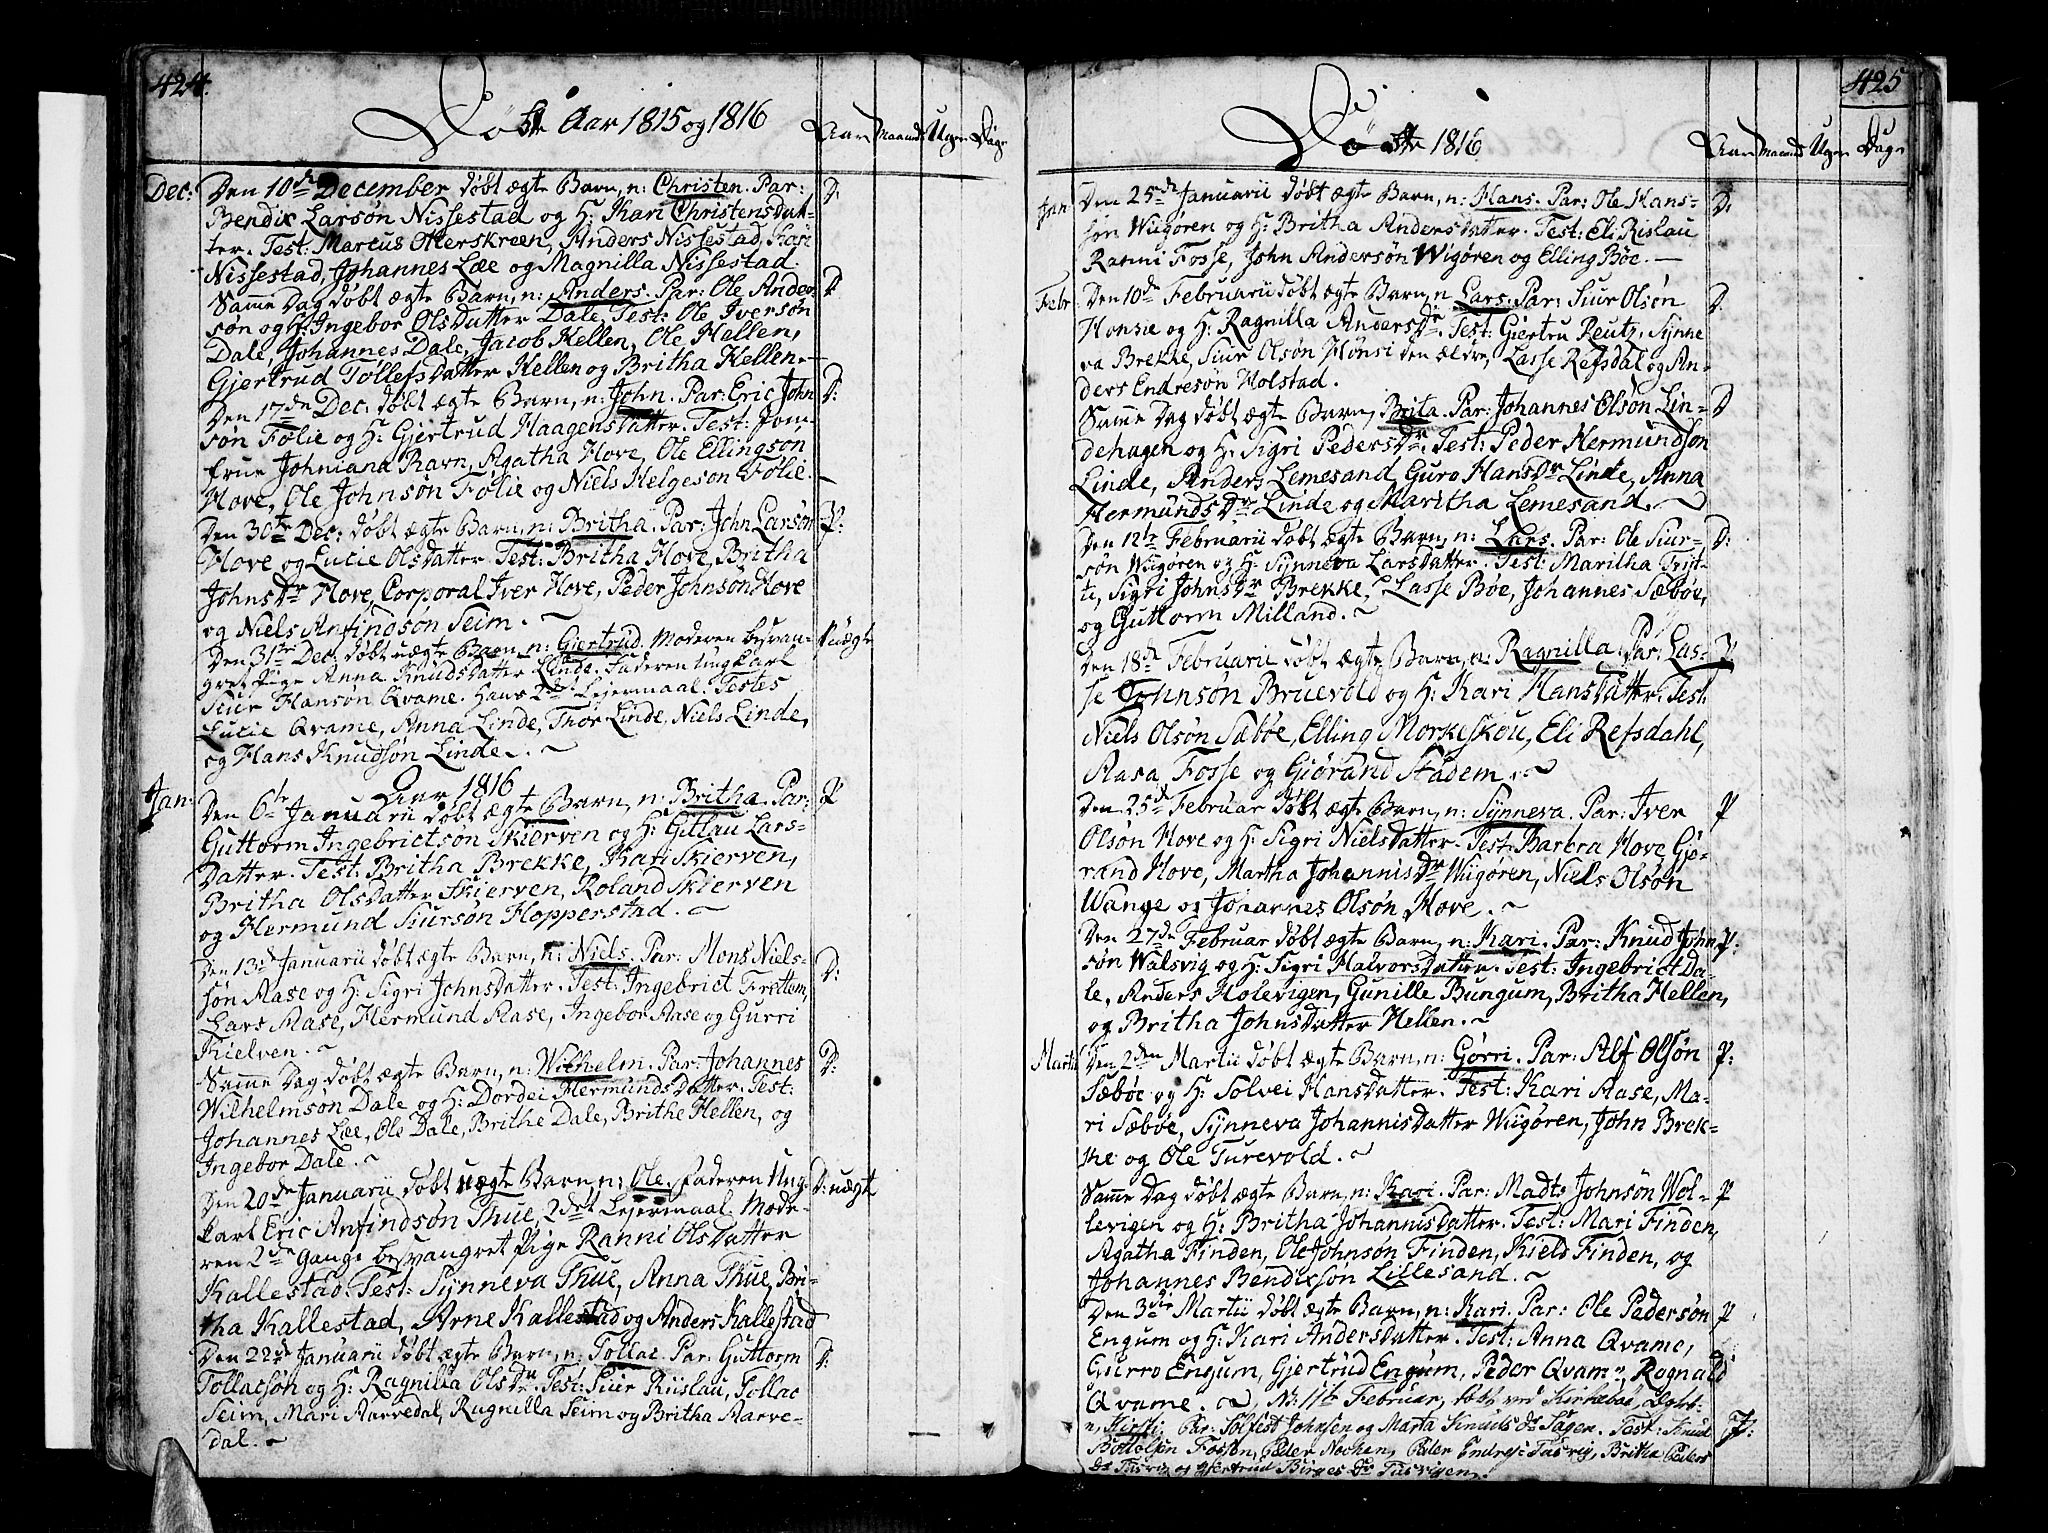 424.
Døbte Aar 1815 og 1816
Aar Maaned Uger Dage
Dec: Den 10de December døbt ægte Barn, n: Christen. Par: D:
Bendix Larsøn Nissestad og H: Kari Christensdat-
ter. Test: Marcus Otterskreen, Anders Nissestad, Kari
Nissestad, Johannes Lœe og Magnilla Nissestad.
Samme Dag døbt ægte Barn, n: Anders. Par: Ole Ander-
søn og H: Ingebor Olsdatter Dale. Test: Ole Iversøn
Dale, Johannes Dale, Jacob Hellen, Ole Hellen,
Gjertrud Tollefsdatter Hellen og Britha Hellen. —
Den 17de Dec: døbt ægte Barn, n: John. Par: Eric John D:
søn Følie og H: Gjertrud Haagensdatter. Test: Jom-
frue Johniana Ravn, Agatha Hove, Ole Ellingsøn
Hove, Ole Johnsøn Følie og Niels Helgeson Følie. —
Den 30te Dec: døbt ægte Barn, n: Britha. Par: John Larsøn P:
Hove og Lucie Olsdatter. Test: Britha Hove, Britha
Johnsdr Hove, Corporal Iver Hove, Peder Johnson Hove
og Niels Anfindsøn Seim. ~
Den 31te Dec: døbt uægte Barn, n: Gjertrud. Moderen besvan- P uægte
gret Pige Anna Knudsdatter Linde. Faderen ungkarl
Siur Hansøn Qvame. Hans 2det Lejermaal. Testes
Lucie Qvame, Anna Linde, Thor Linde, Niels Linde,
og Hans Knudsøn Linde. ~
Aar 1816
Jan: Den 6te Januarii døbt ægte Barn, n: Britha. Par: P
Guttorm Ingebrictsøn Skierven og H: Gitlau Lars-
datter. Test: Britha Brekke, Kari Skierven,
Britha Olsdatter Skierven, Roland Skierven
og Hermund Siursøn Hopperstad. ~
Den 13de Januarii døbt ægte Barn, n: Niels. Par: Mons Niels- D:
søn Aase og H: Sigri Johnsdatter. Test: Ingebrict Frettem,
Lars Aase, Hermund Aase, Ingebor Aase og Gurri
Kielven. ~
Samme Dag døbt ægte Barn, n: Wilhelm. Par: Johannes D:
Wilhelmsøn Dale og H: Dordei Hermundsdatter. Test:
Johannes Lœe, Ole Dale, Brithe Dale, Brithe Hellen, og
Ingebor Dale. ~
Den 20de Januarii døbt uægte Barn, n: Ole. Faderen Ung- D: uægt
karl Eric Anfindsøn Thue, 2det Lejermaal. Mode-
ren 2den Gange besvangret Pige Ranni Olsdatter
Kallestad. Test: Synneva Thue, Anna Thue, Bri-
tha Kallestad, Arne Kallestad og Anders Kallestad
Den 22de Januarii døbt ægte Barn, n: Tollac. Par: Guttorm D:
Tollacsøn og H: Ragnilla Olsdr. Test: Siur Riislau, Tollac
Seim, Mari Aarvedal, Ragnilla Seim og Britha Aarve-
dal. ~
425
Døbte 1816
Aar Maaned Uger Dage
Jan Den 25de Januarii døbt ægte Barn, n: Hans. Par: Ole Hans- D:
søn Wiigøren og H: Britha Andersdatter. Test: Eli Rislau
Ranni Fosse, John Andersøn Wigøren og Elling Bøe. —
Febr Den 10de Februarii døbt ægte Barn, n Lars. Par: Siur Olsøn D:
Honsie og H: Ragnilla Andersdr. Test: Gjertru Reutz, Synne
va Brekke, Siur Olsøn Hønsi den ældre, Lasse Refsdal og An-
ders Endresøn Holstad.
Samme Dag døbt ægte Barn, Brita. Par: Johannes Olsøn Lin- D
dehagen og H: Sigri Pedersdr. Test: Peder Hermundsøn
Linde, Anders Lemesand, Guro Hansdr Linde, Anna
Hermundsdr Linde og Maritha Lemesand. ~
Den 12te Februarii døbt ægte Barn, n: Lars. Par: Ole Siur- D:
søn Wiigøren og H: Synneva Larsdatter. Test: Maritha Tryt-
ti, Sigri Johnsdr Brekke, Lasse Bøe, Johannes Sæbøe,
og Guttorm Milland. ~
Den 18de Februarii døbt ægte Barn, n: Ragnilla. Par: Las- P
se Johnsøn Bruevold og H: Kari Hansdatter. Test:
Niels Olsøn Sæbøe, Elling Morkeskou, Eli Refsdahl,
Aasa Fosse og Giørand Stadem. ~
Den 25de Februar døbt ægte Barn, n: Synneva. Par: Iver P
Olsøn Hove og H: Sigri Nielsdatter. Test: Barbra Hove, Gjø-
rand Hove, Martha Johannisdr Wiigøren, Niels Olsøn
Wange og Johannes Olsøn Hove. ~
Den 27de Februar døbt ægte Barn, n: Kari. Par: Knud John P:
søn Walsvig og H: Sigri Halvorsdatter. Test: Ingebrict Da-
le, Anders Holevigen, Gunille Bungum, Britha Hellen,
og Britha Johnsdatter Hellen. ~
Martii Den 2den Martii døbt ægte Barn, n: Gørri. Par: Alf Olsøn P:
Sæbøe og H: Solvei Hansdatter. Test: Kari Aase, Ma-
ri Sæbøe, Synneva Johannisdatter Wiigøren, John Brek-
ke og Ole Turevold. ~
Samme Dag døbt ægte Barn, n: Kari. Par: Madts Johnsøn Hol- P
levigen og H: Britha Johannisdatter. Test: Mari Finden,
Agatha Finden, Ole Johnsøn Finden, Kield Finden, og
Johannes Bendixsøn Lillesand. ~
Den 3die Martii døbt ægte Barn, n: Kari. Par: Ole Pedersøn P
Engum og H: Kari Andersdatter. Test: Anna Qvame,
Gurro Engum, Gjertrud Engum, Peder Qvame, Rognald
Qvame. ~ 11te Februar, døbt ved Kirkebøe,
n, Kirsti, Par: Solfest Johnsen og Marta Knuds dr Test: Knud P:
Bottolfsen Fossen, Peder Nochen, Peder Britha Peders
dr og Gjertrud Birges dr